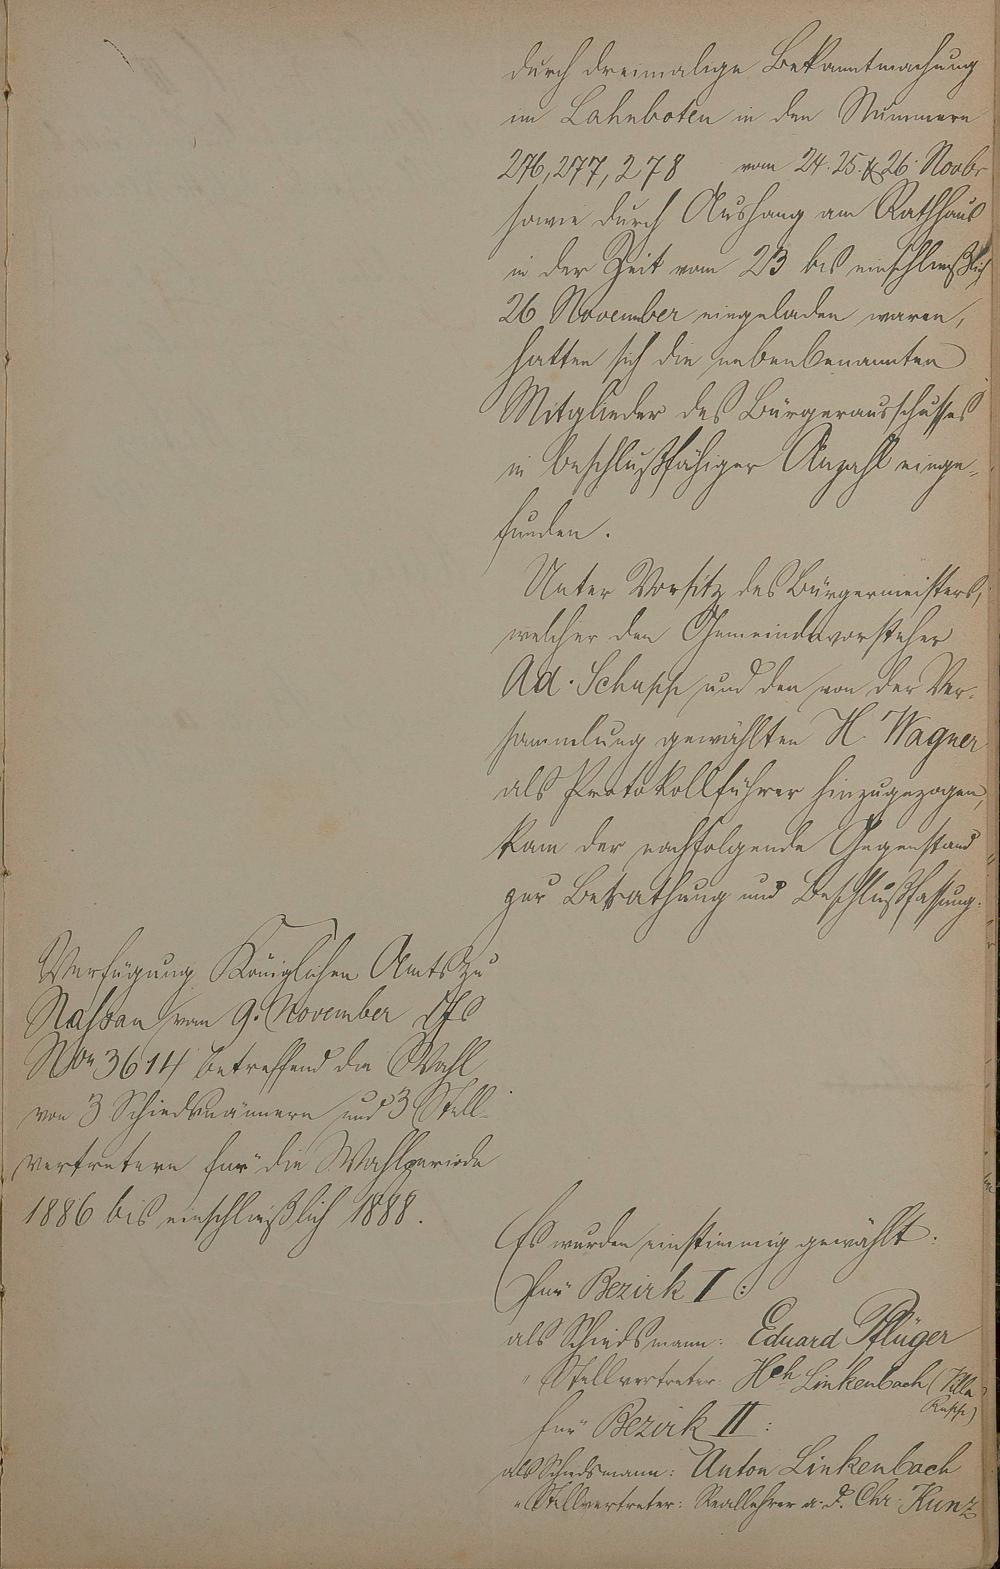 durch dreimalige Bekanntmachung
im Lahnboten in den Nummern
276, 277, 278 vom 24. 25. & 26. Novbr
sowie durch Aushang am Rathhaus
in der Zeit vom 23 bis einschließlich
26 November eingeladen waren,
hatten sich die nebenbenannten
Mitglieder des Bürgerausschusses
in beschlußfähiger Anzahl einge-
funden.
Unter Vorsitz des Bürgermeisters,
welcher den Gemeindevorsteher
Ad. Schupp und den von der Ver-
sammlung gewählten H. Wagner
als Protokollführer hinzugezogen,
kam der nachfolgende Gegenstand
zur Berathung und Beschlußfassung.
Verfügung Königlichen Amts zu
Nassau vom 9. November dJs
Nro 3614 betreffend die Wahl
von 3 Schiedsmännern und 3 Stell-
vertretern für die Wahlperiode
1886 bis einschließlich 1888.
Es wurden einstimmig gewählt:
Für Bezirk I:
als Schiedsmann: Eduard Pflüger
" Stellvertreter: Hch Linkenbach (Villa
Rupp)
für Bezirk II:
als Schiedsmann: Anton Linkenbach
" Stellvertreter: Reallehrer a. D. Chr. Kunz